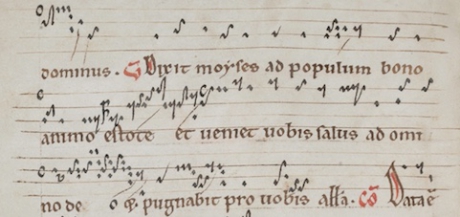 dominus. G Dixit moyses ad populum bono
animo estote et ueniet uobis salus ad omi
no de o q̨ pugnabit pro uobis all'a. Co Data ē